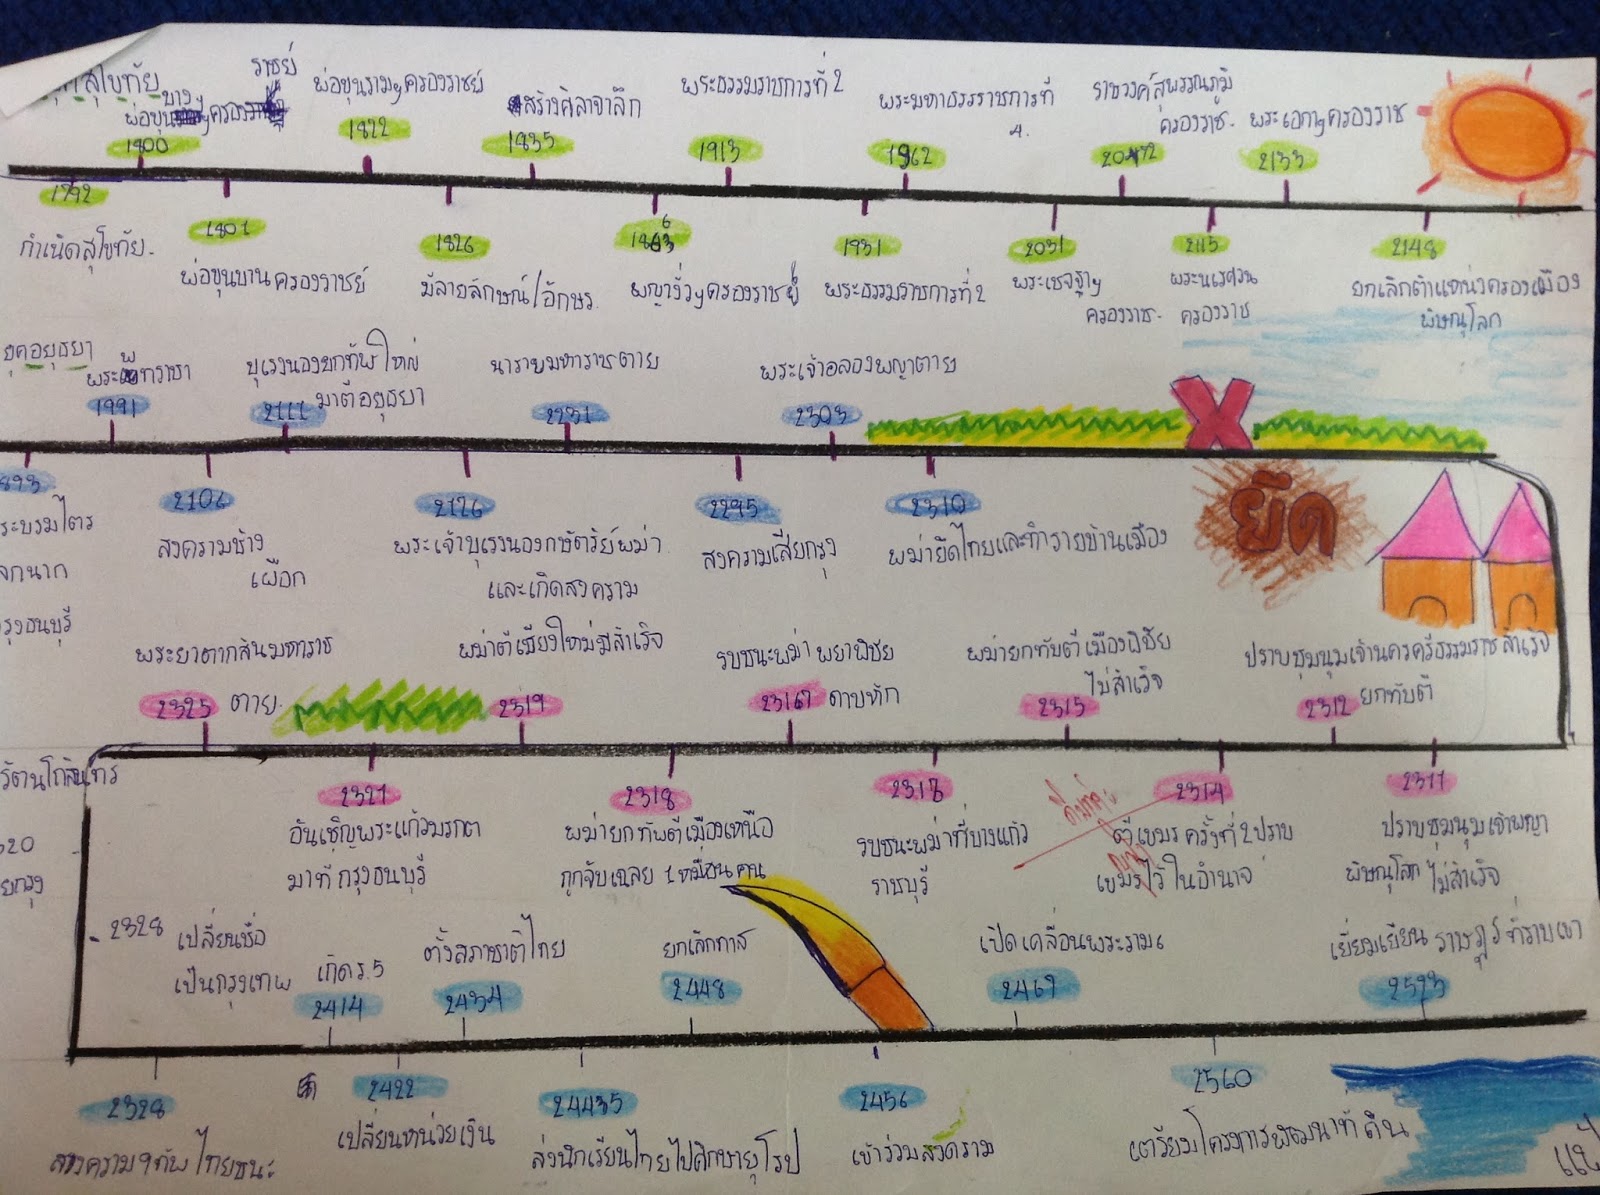 สุโขทัย
พ่อขุนบางyครองราชย์
พ่อขุนรามyครองราชย์
สร้างศิลาจาลึก
พระธรรมราชการที่ 2
พระมหาธรรมราชการที่
4.
ราชวงค์สุพรรณภูมิ
ครองราช.
พระเอกาyครองราช
1800
1822
1835
1913
1962
2133
1792
1801
1826
1931
2031
2115
2148
กำเนิดสุโขทัย.
พ่อขุนบานครองราชย์
มีลายลักษณ์/อักษร.
พญางั่วyครองราชย์
พระธรรมราชการที่ 2
พระเชจฐาy
ครองราช.
พระนเรศวน
ครองราช
ยกเลิกตำแหน่งครองเมือง
พิษณุโลก
ยุคอยุธยา
พระเพทราชา
บุเรงนองยกทัพใหญ่
มาตีอยุธยา
นารายมหาราชตาย
พระเจ้าอลองพญาตาย
1991
2111
2231
2303
893
2106
2126
2295
2310
ระบรมไตร
ลกนาก
สงครามช้าง
เผือก
พระเจ้าบุเรงนองกษัตริย์พม่า
และเกิดสงคราม
สงครามเสียกรุง
พม่ายึดไทยและทำรายบ้านเมือง
ยึด
กรุงธนบุรี
พระยาตากสินมหาราช
ตาย.
พม่าตีเชียงใหม่มีสำเร็จ
รบชนะพม่า พยาพิชัย
ดาบหัก
พม่ายกทับตีเมืองพิชัย
ไม่สำเร็จ
ปราบชุมนุมเจ้านครศรีธรรมราชสำเร็จ
ยกทับตี
2325
2319
2315
2312
รัตนโกสินทร
2321
2318
2318
2314
2311
อันเชิญพระแก้วมรกต
มาที่กรุงธนบุรี
พม่ายกทัพตีเมืองเหนือ
ถูกจับเฉลย 1 หมื่นคน
รบชนะพม่าที่บางแก้ว
ราชบุรี
ตีเขมร ครั้งที่ 2 ปราบ
เขมรไว้ในอำนาจ
ปราบชุมนุมเจ้าพญา
พิษณุโลก ไม่สำเร็จ
2328 เปลี่ยนชื่อ
เป็นกรุงเทพ
เกิด ร.5
ตั้งสภาชาติไทย
ยกเลิกทาส
เปิดเคลื่อนพระราม6
เยี่ยมเยียน ราษฎร์ ที่ราบเขา
2414
2434
2448
2469
2523
2328
2422
24435
2456
2560
สงคราม 9 ทัพ ไทยชนะ
เปลี่ยนหน่วยเงิน
ส่งนักเรียนไทยไปศึกษายุโรป
เข้าร่วมสงคราม
เตรียมโครงการพัฒนาที่ดิน